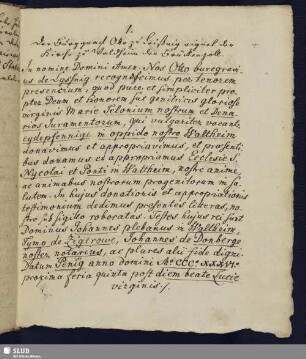 1.
Der Burggraf Otto zu Leißnig eignet der
Kirche zu Waldheim das
In nomine Domini Amen. Nos Otto burcgravi-
us de Lyssnig recognoscimus per tenorem
presencium, quod pure et simpliciter prop-
ter Deum et honorem sue genitricis gloriose
virginis Marie Telonium nostrum et Dena-
rios Juramentorum, qui vulgariter vocantur
eydepfennige in oppido nostro Waltheim
donavimus et appropriavimus, et presenti-
bus donamus et appropriamus Ecclesie S.
Nycolai et Ponti in Waltheim, nostre anime
ac animabus nostrorum progenitorum in sa-
lutem. In hujus donationis et appropriationis
testimonium dedimus presentes literas, no-
stro sub sigillo roboratas. Testes hujus rei sunt
Dominus Johannes plebanus in Waltheim,
Tymo de Johannes de Donberge
noster notarius, ac plures alii fide digni.
Datum Penig anno domini M° CCC° XXXVI°
proxima feria quinta post diem beate Lucie
virginis.
SLUB
Wir führen Wissen.